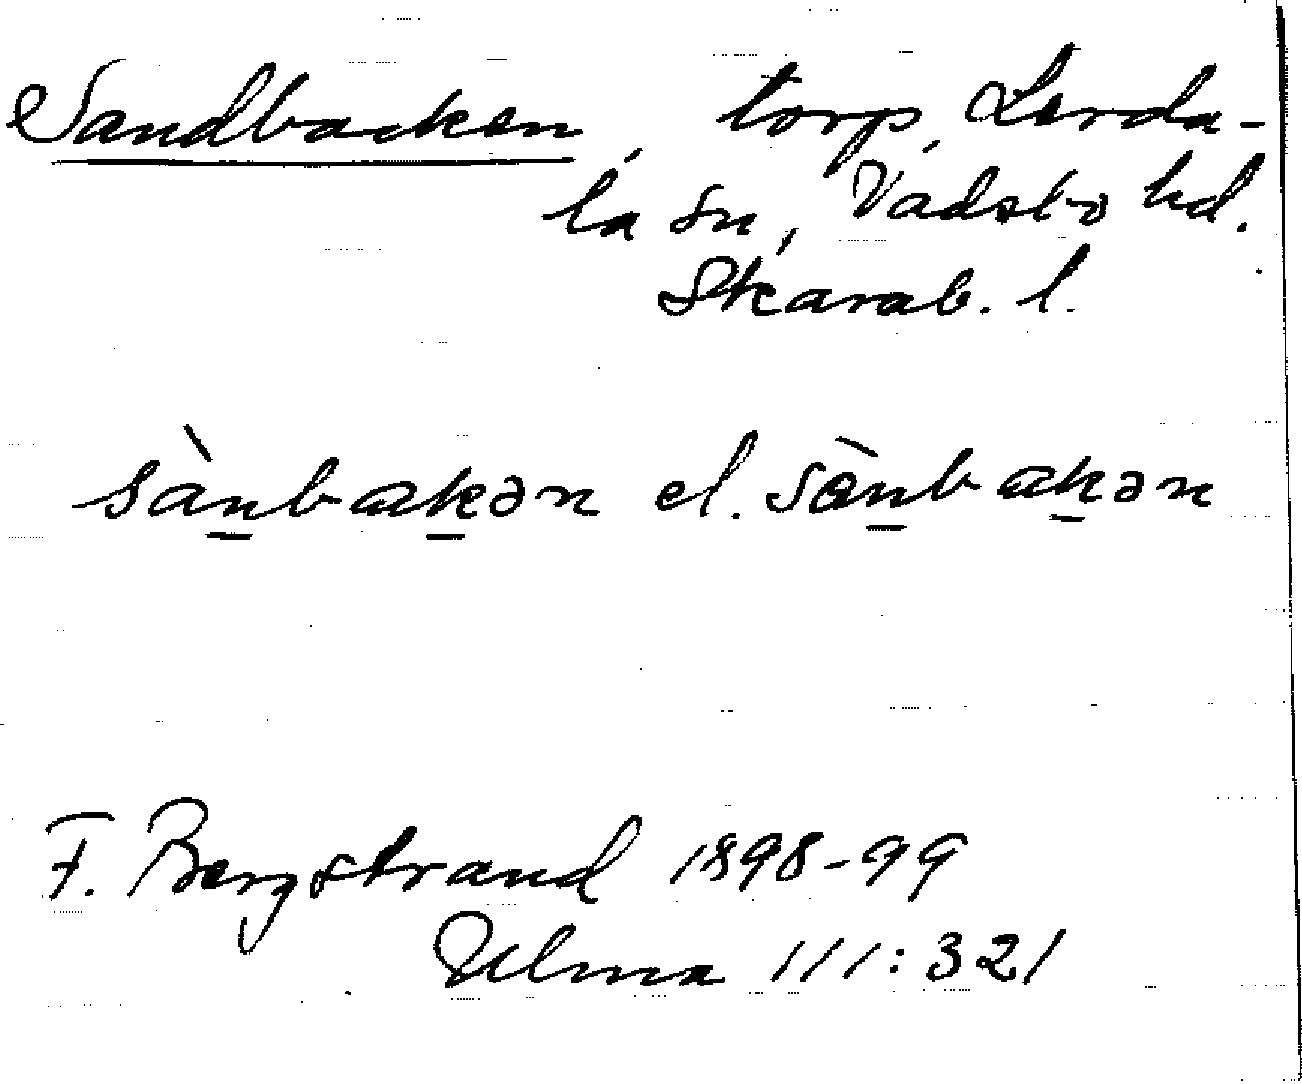 Sandbacken, torp, Lerda-
la sn, Vadsbo hd.
Skarab. l.
sànbakən el. sànbakən
F. Bergstrand 1898-99
Ulma 111:321